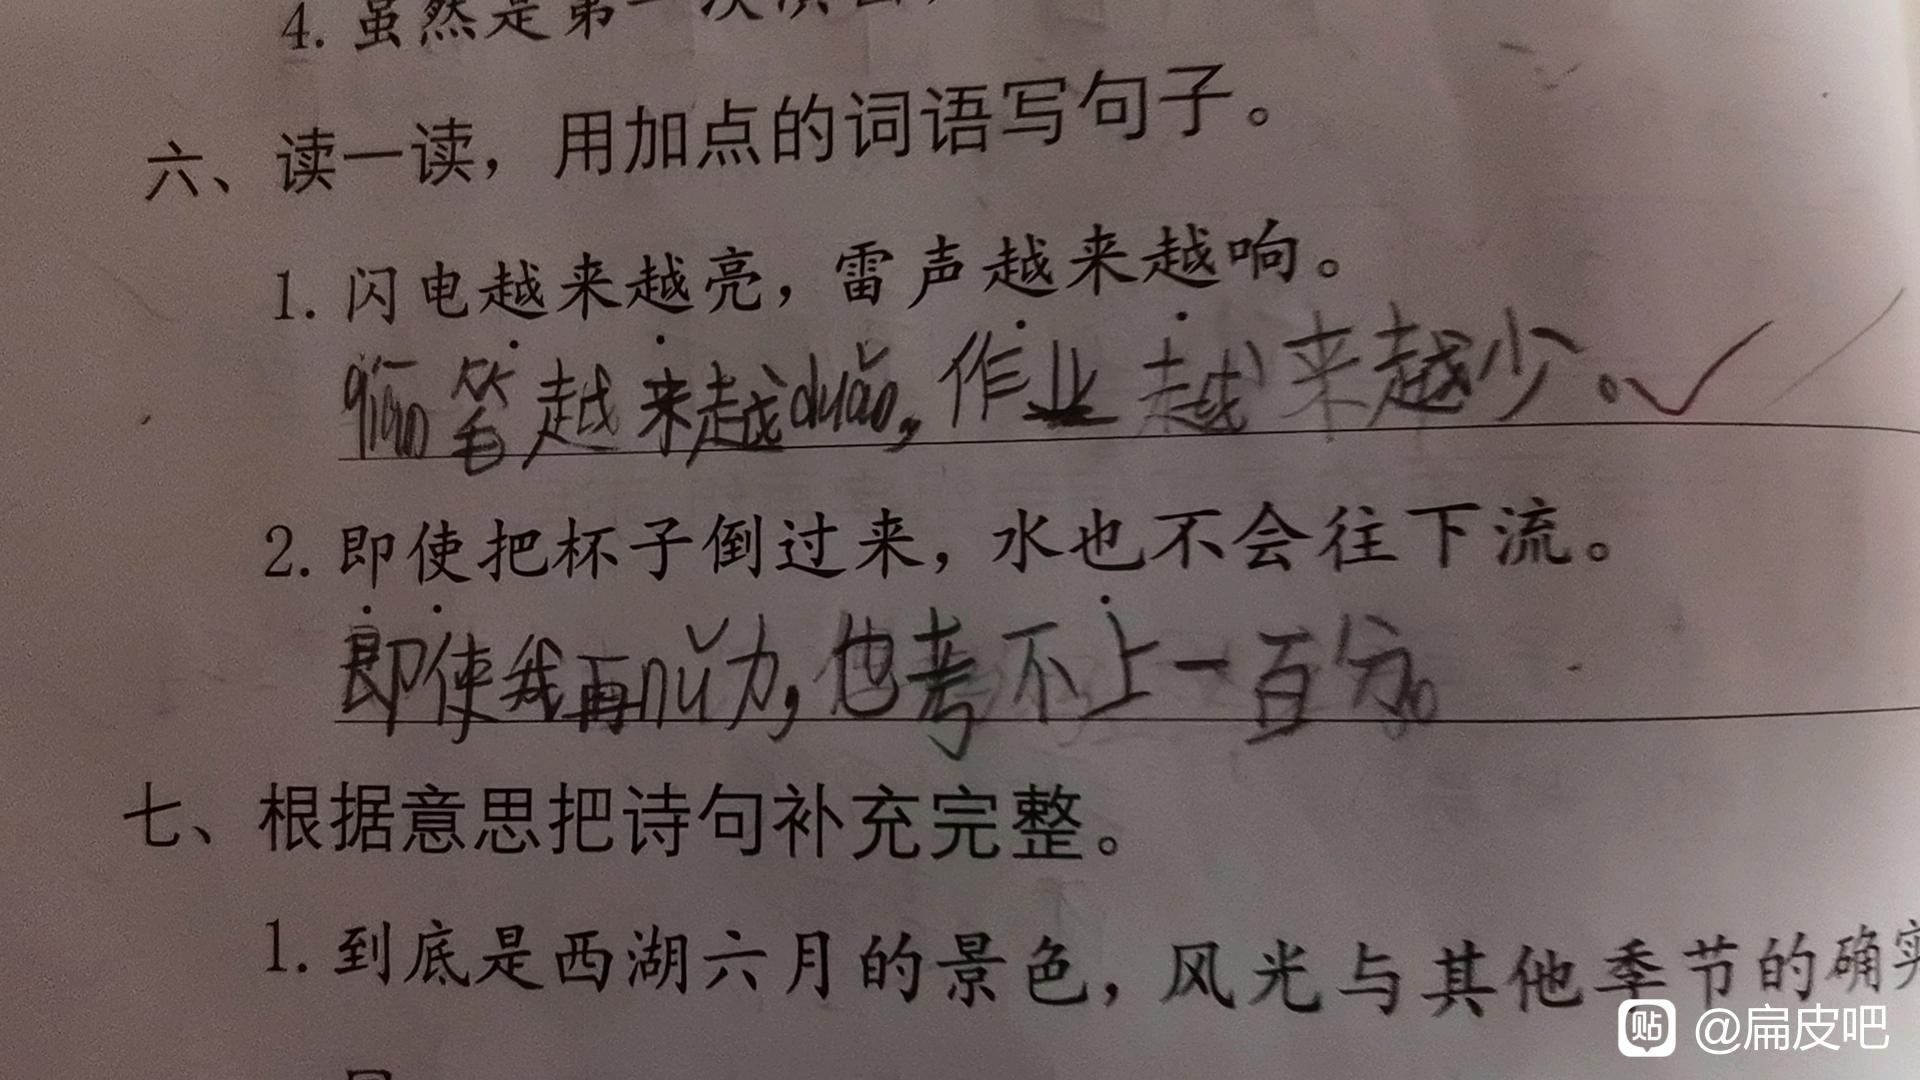 4. 虽然是第一次演出,
六、读一读，用加点的词语写句子。
1. 闪电越来越亮，雷声越来越响。
qiān笔越来越duǎn，作业越来越少。
2. 即使把杯子倒过来，水也不会往下流。
即使我再nǔ力，也考不上一百分。
七、根据意思把诗句补充完整。
1. 到底是西湖六月的景色，风光与其他季节的确实
贴 @扁皮吧